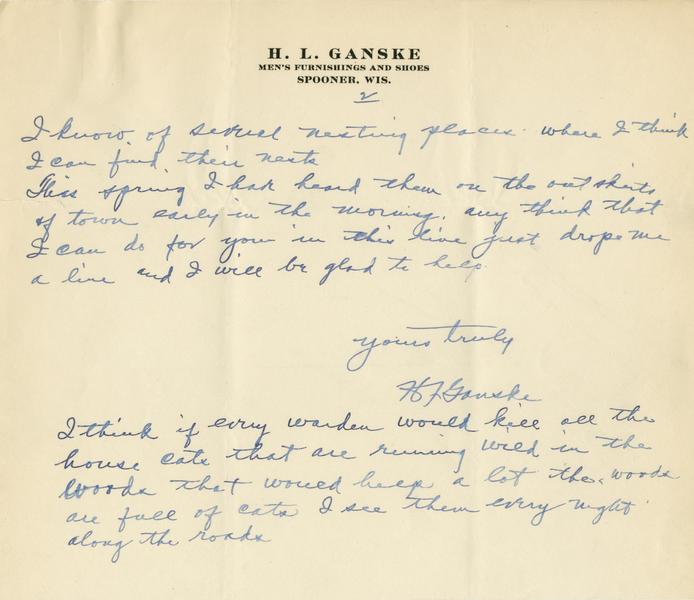 H. L. GANSKE
MEN'S FURNISHINGS AND SHOES
SPOONER, WIS.
2
I know of several nesting places where I think
I can find their nests
This spring I hav heard them on the out skirts
of town early in the morning. any think that
I can do for you in this live just drope me
a line and I will be glad to help.
yours truly
H L Ganske
I think if every warden would kill all the
house cats that are running wild in the
woods that would help a lot the woods
are full of cats I see them every night
along the roads